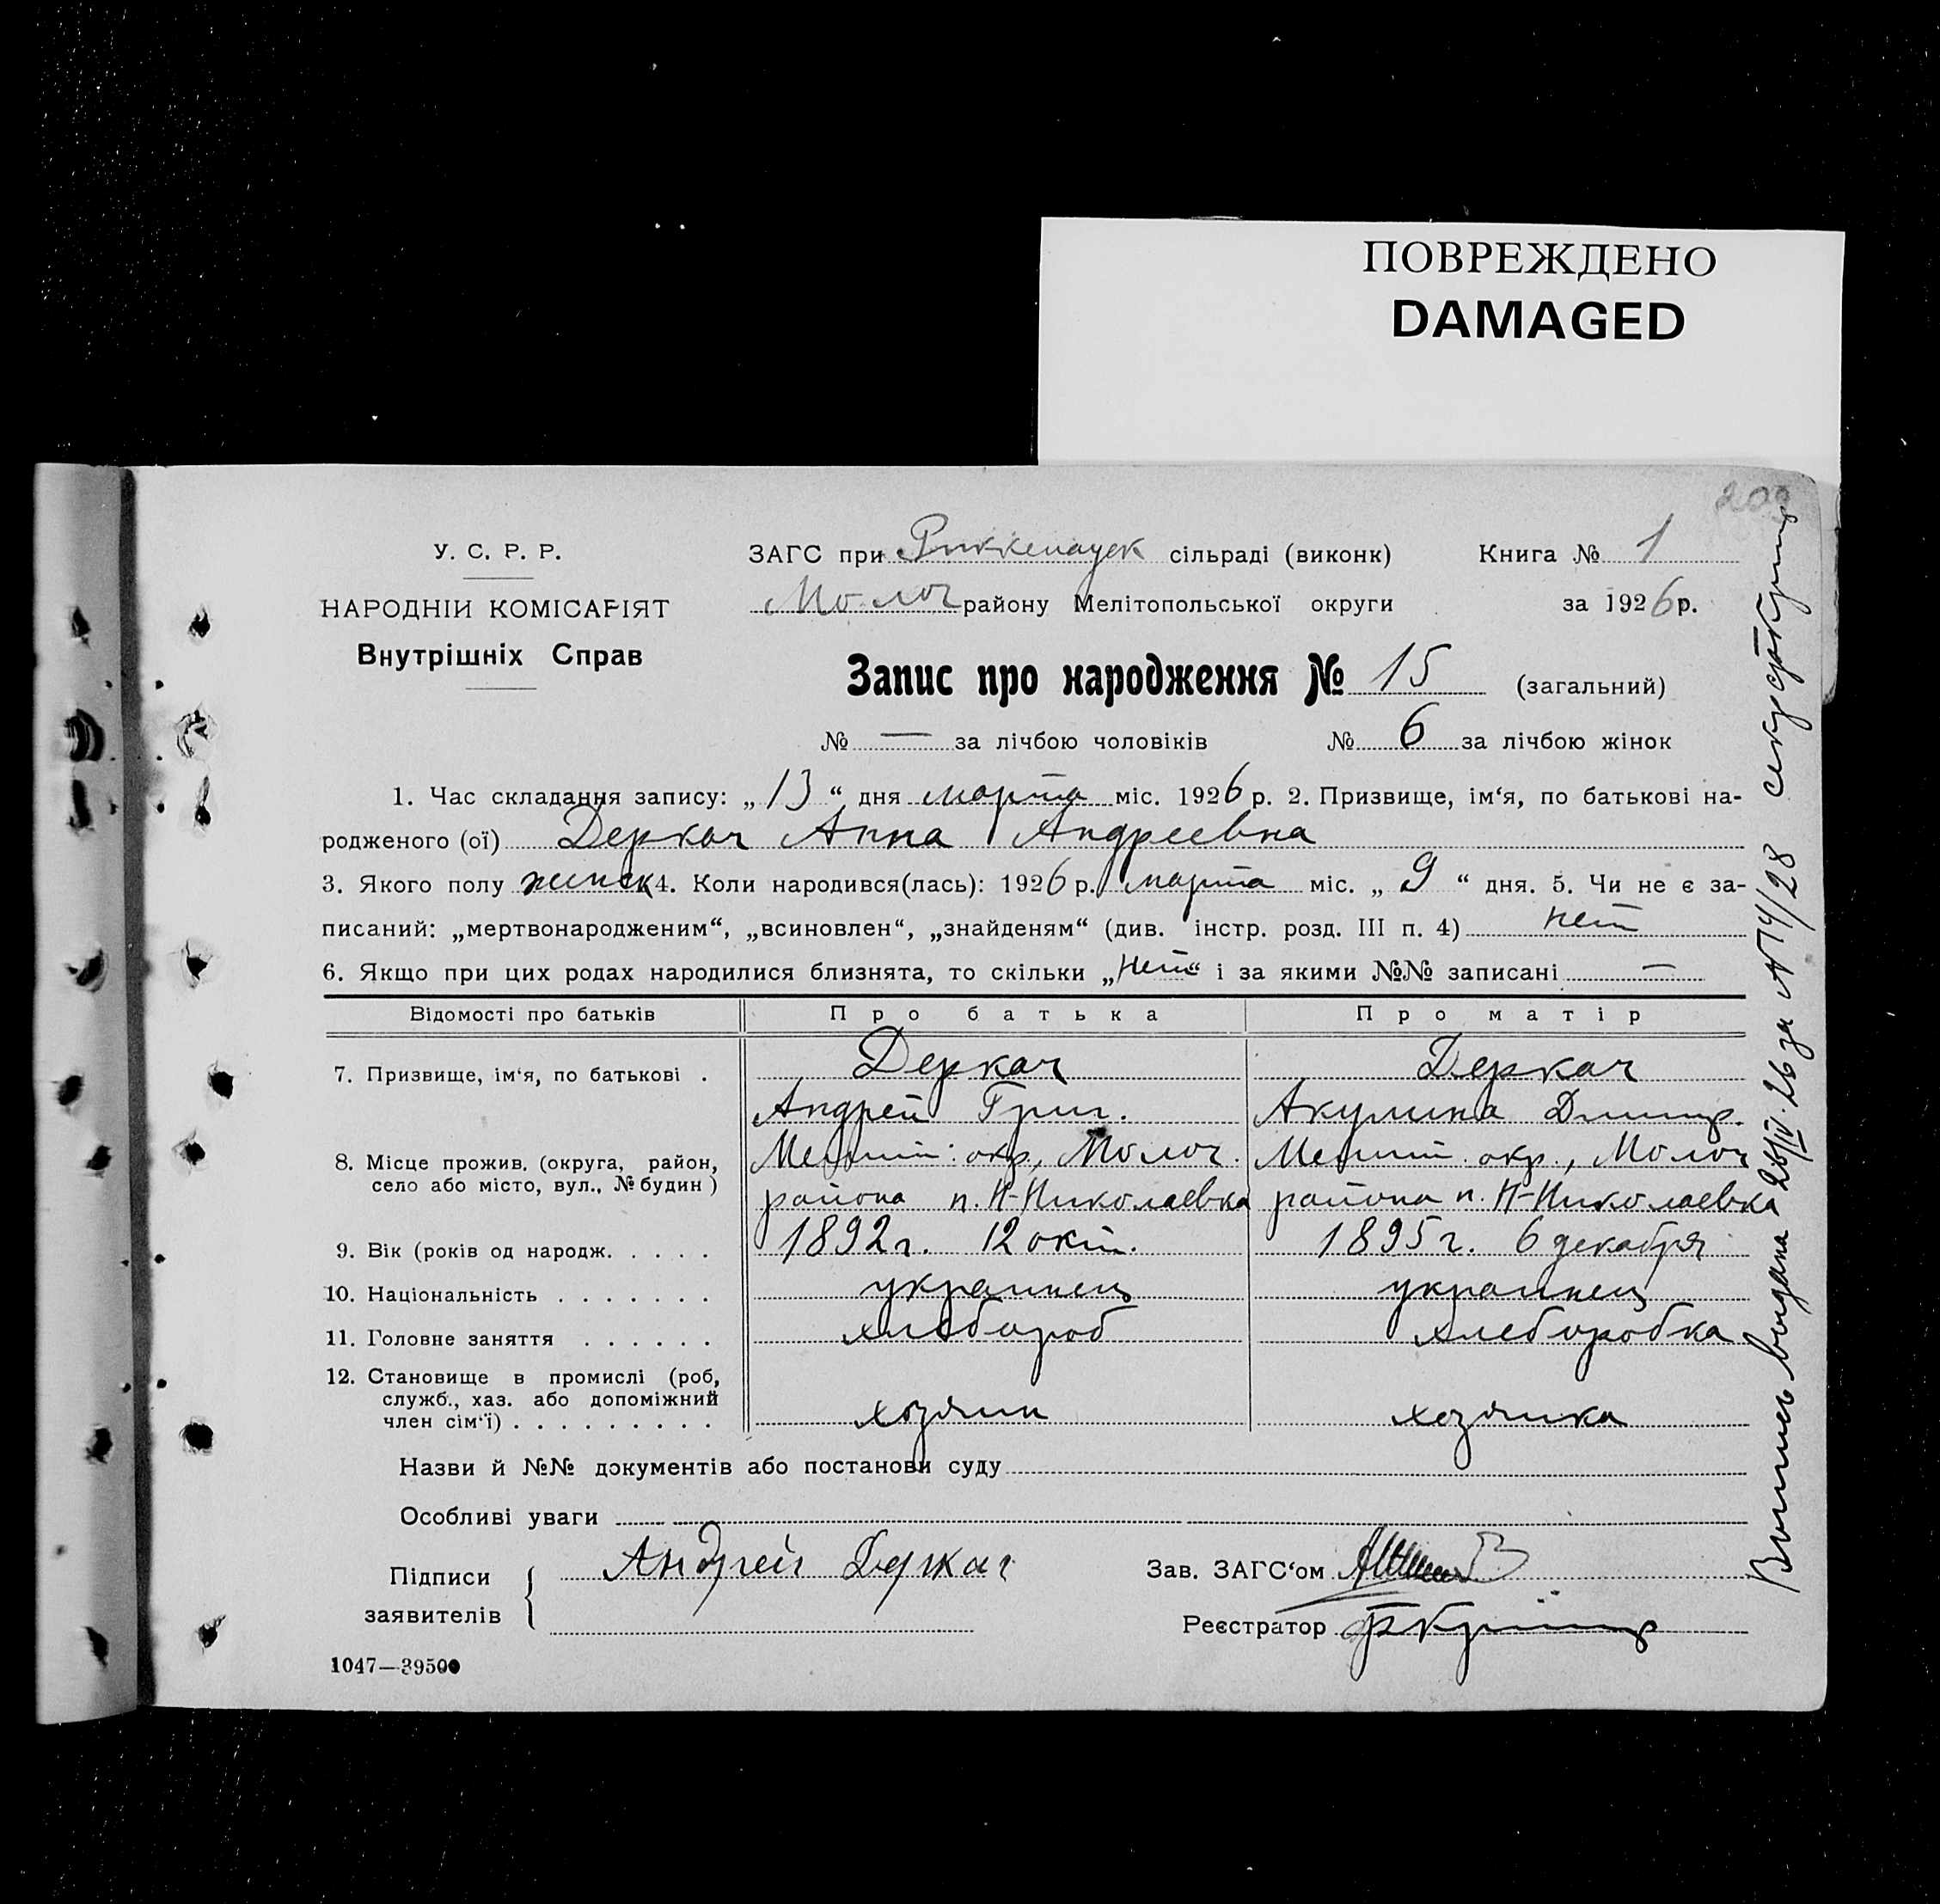 ПОВРЕЖДЕНО
DAMAGED
203
У. С. Р. Р.
НАРОДНІЙ КОМІСАРІЯТ
Внутрішніх Справ
ЗАГС при Риккенауск сільраді (виконк)
Молоч району Мелітопольської округи
Книга № 1
за 1926 р.
Запис про народження № 15 (загальний)
№ — за лічбою чоловіків № 6 за лічбою жінок
1. Час складання запису: „13“ дня марта міс. 1926 р. 2. Призвище, ім‘я, по батькові на-
родженого (ої) Деркач Анна Андреевна
3. Якого полу женск 4. Коли народився(лась): 1926 р. марта міс. „ 9 “ дня. 5. Чи не є за-
писаний: „мертвонародженим“, „всиновлен“, „знайденям“ (див. інстр. розд. III п. 4) нет
6. Якщо при цих родах народилися близнята, то скільки „нет“ і за якими №№ записані —
Відомості про батьків Про батька Про матір
7. Призвище, ім‘я, по батькові . Деркач Деркач
Андрей Григ. Акулина Дмитр.
8. Місце прожив. (округа, район, Мелит. окр., Молоч. Мелит. окр., Молоч
село або місто, вул., № будин ) района п. Н-Николаевка района п. Н-Николаевка
9. Вік (років од народж. . . . . 1892 г. 12 окт. 1895 г. 6 декабря
10. Національність . . . . . . . украинец украинец
11. Головне заняття . . . . . . хлебороб хлеборобка
12. Становище в промислі (роб,
служб., хаз. або допоміжний
член сім‘ї) . . . . . . . . . хозяин хозяйка
Назви й №№ документів або постанови суду
Особливі уваги
Підписи
заявителів
Андрей Деркач
Зав. ЗАГС‘ом
Реєстратор
1047—39500
Выпись выдана 28/IV-26 за № 14/28 секр